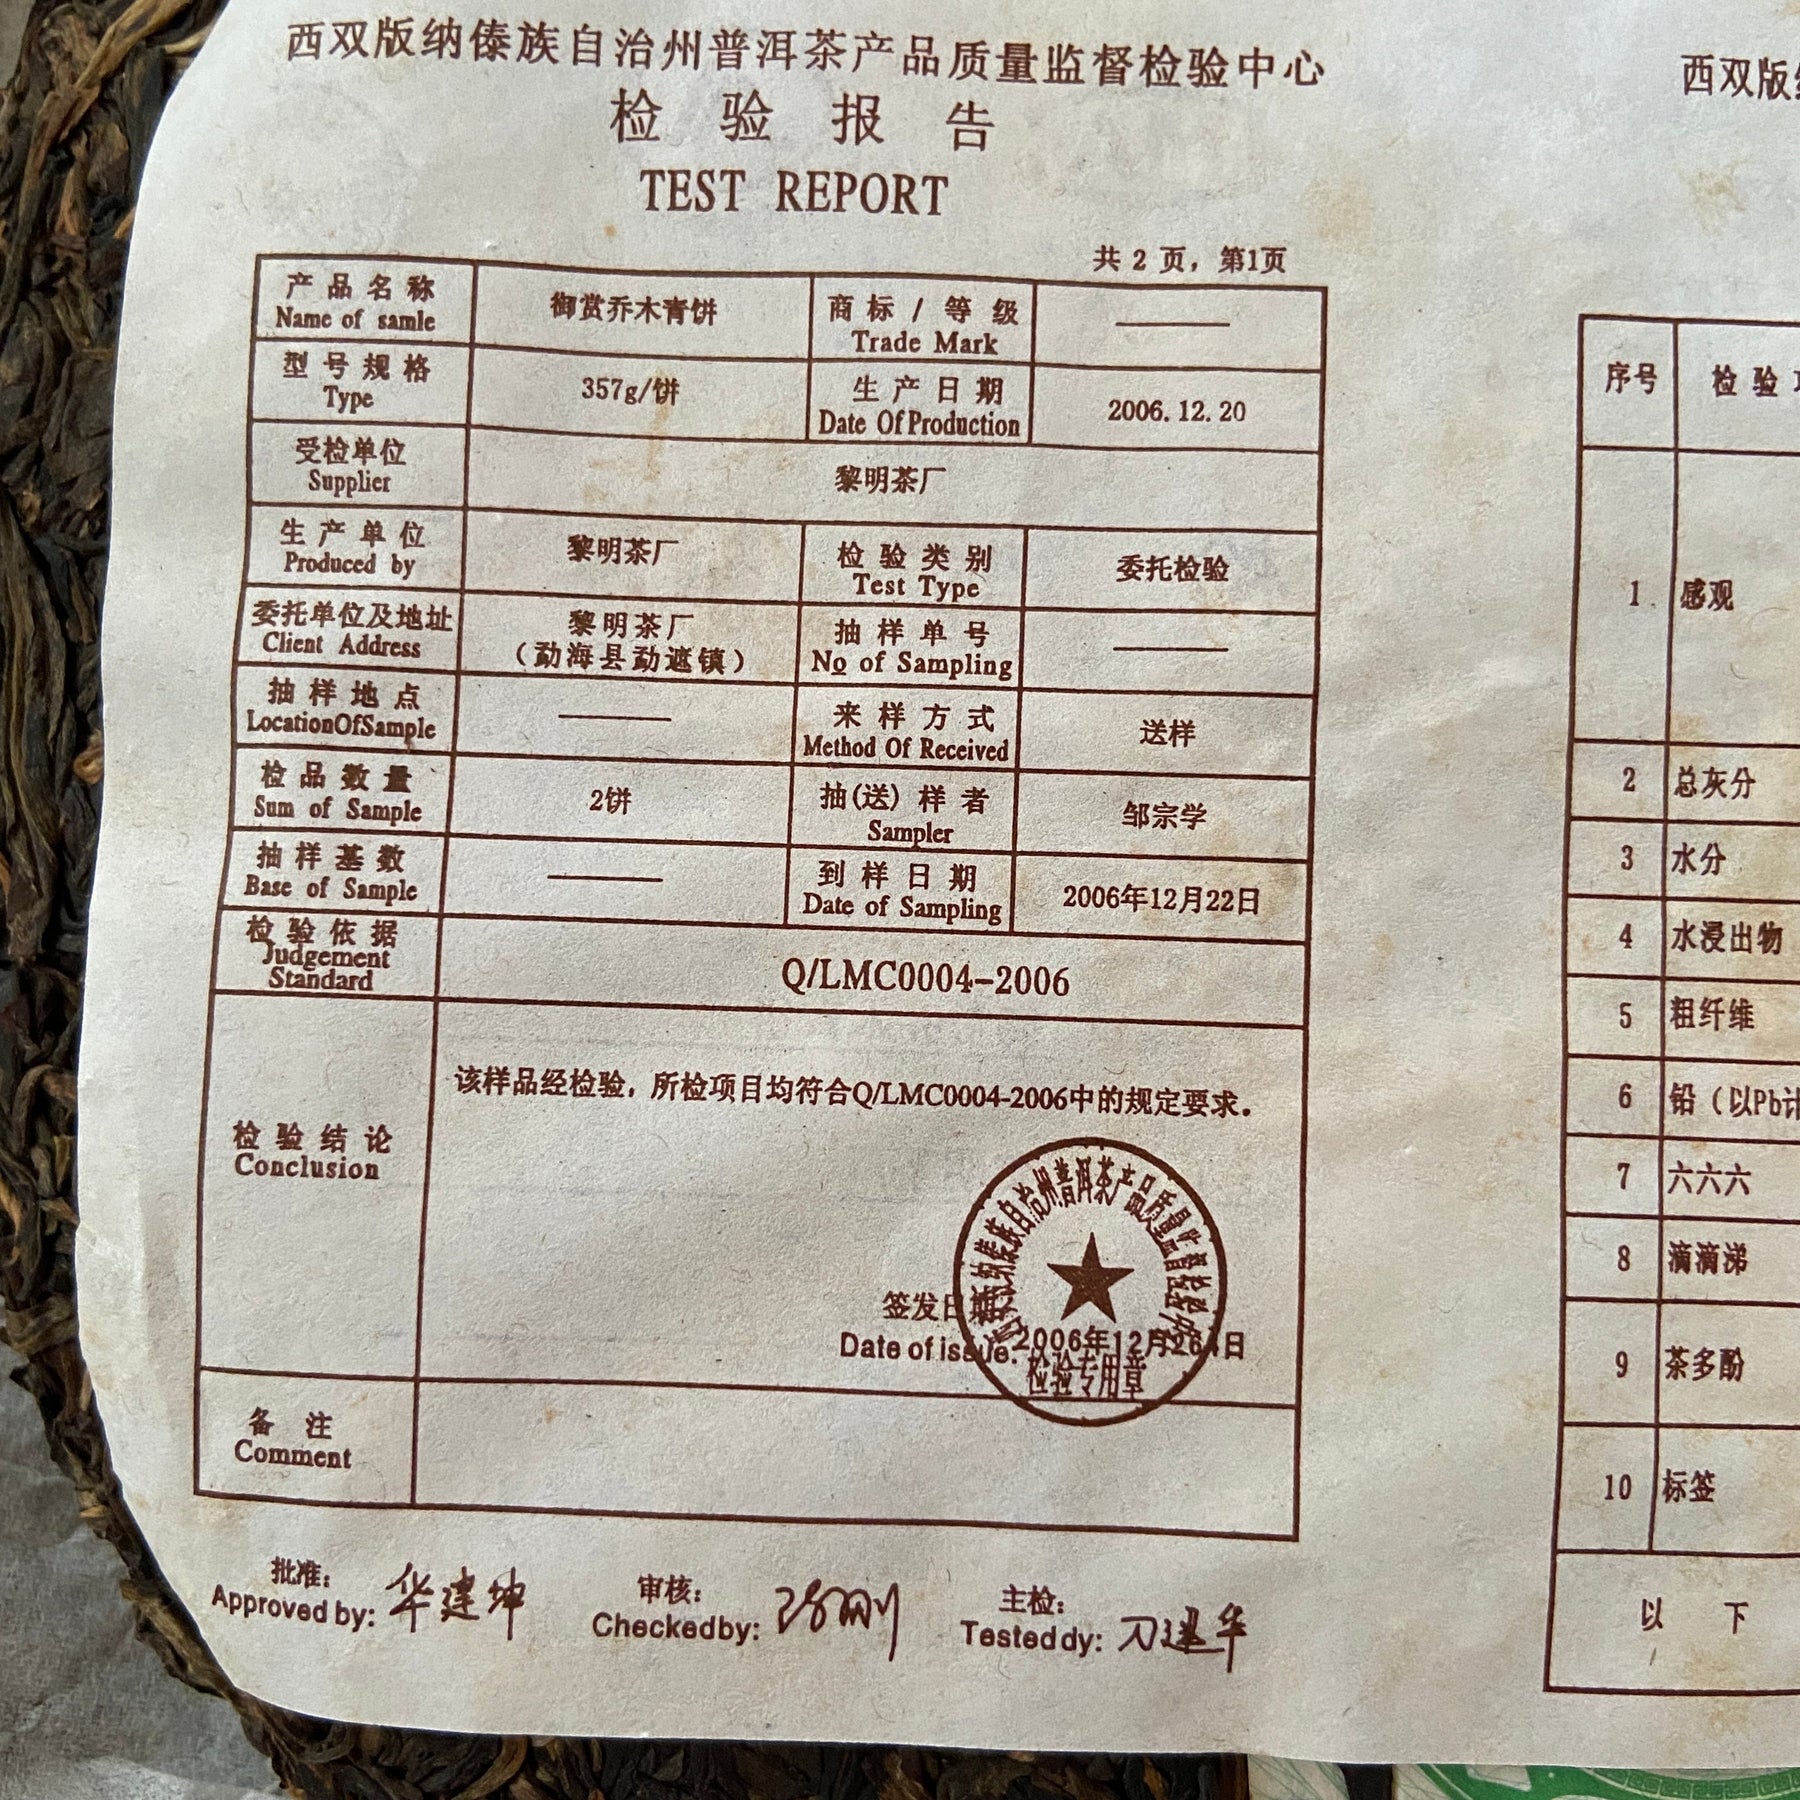 西双版纳傣族自治州普洱茶产品质量监督检验中心
检验报告
TEST REPORT
共 2 页，第1页
产品名称
Name of samle
御赏乔木青饼
商标/等级
Trade Mark
型号规格
Type
357g/饼
生产日期
Date Of Production
2006.12.20
受检单位
Supplier
黎明茶厂
生产单位
Produced by
黎明茶厂
检验类别
Test Type
委托检验
委托单位及地址
Client Address
黎明茶厂
（勐海县勐遮镇）
抽样单号
No of Sampling
抽样地点
LocationOfSample
来样方式
Method Of Received
送样
检品数量
Sum of Sample
2饼
抽(送)样者
Sampler
邹宗学
抽样基数
Base of Sample
到样日期
Date of Sampling
2006年12月22日
检验依据
Judgement
Standard
Q/LMC0004-2006
检验结论
Conclusion
该样品经检验，所检项目均符合Q/LMC0004-2006中的规定要求。
西双版纳傣族自治州普洱茶产品质量监督检验中心
签发日期
Date of issue:
检验专用章
备注
Comment
批准：
Approved by: 华建坤
审核：
Checkedby:
主检：
Testeddy:
西双版
序号
检验
1
感观
2
总灰分
3
水分
4
水浸出物
5
粗纤维
6
铅（以Pb计
7
六六六
8
滴滴涕
9
茶多酚
10
标签
以下